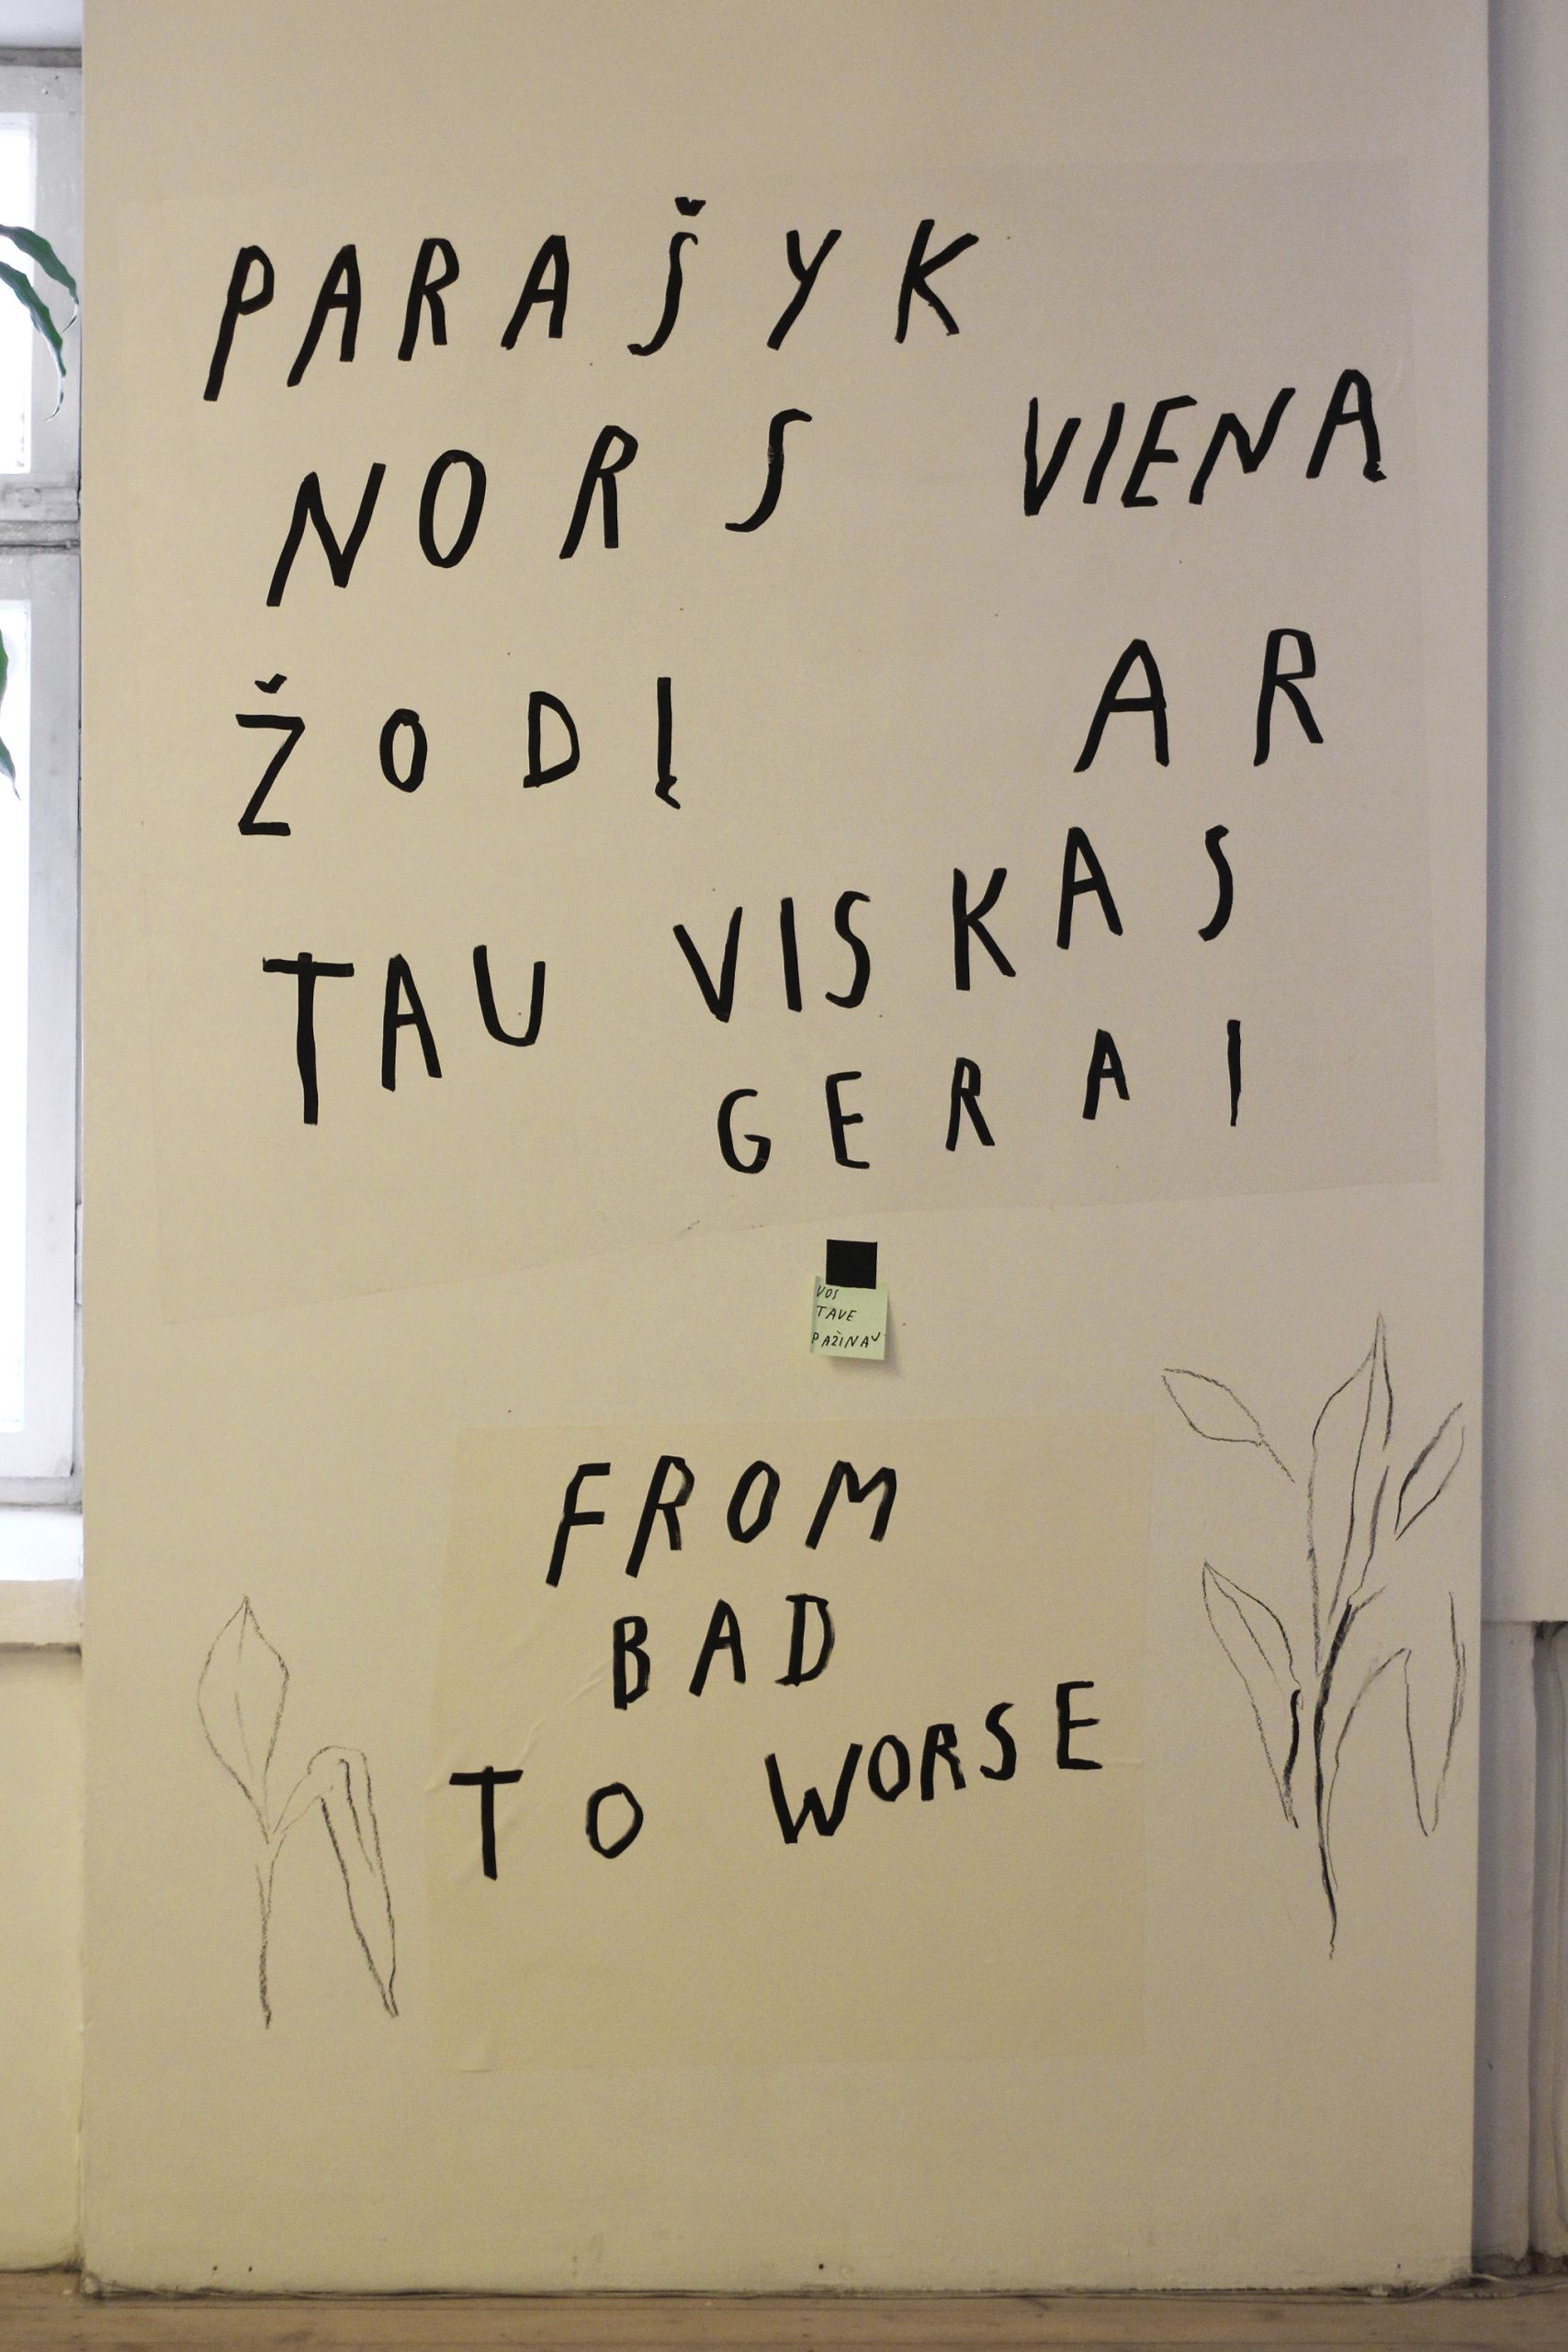 PARAŠYK
NORS VIENĄ
ŽODĮ AR
TAU VISKAS
GERAI
VOS
TAVE
PAŽINAU
FROM
BAD
TO WORSE